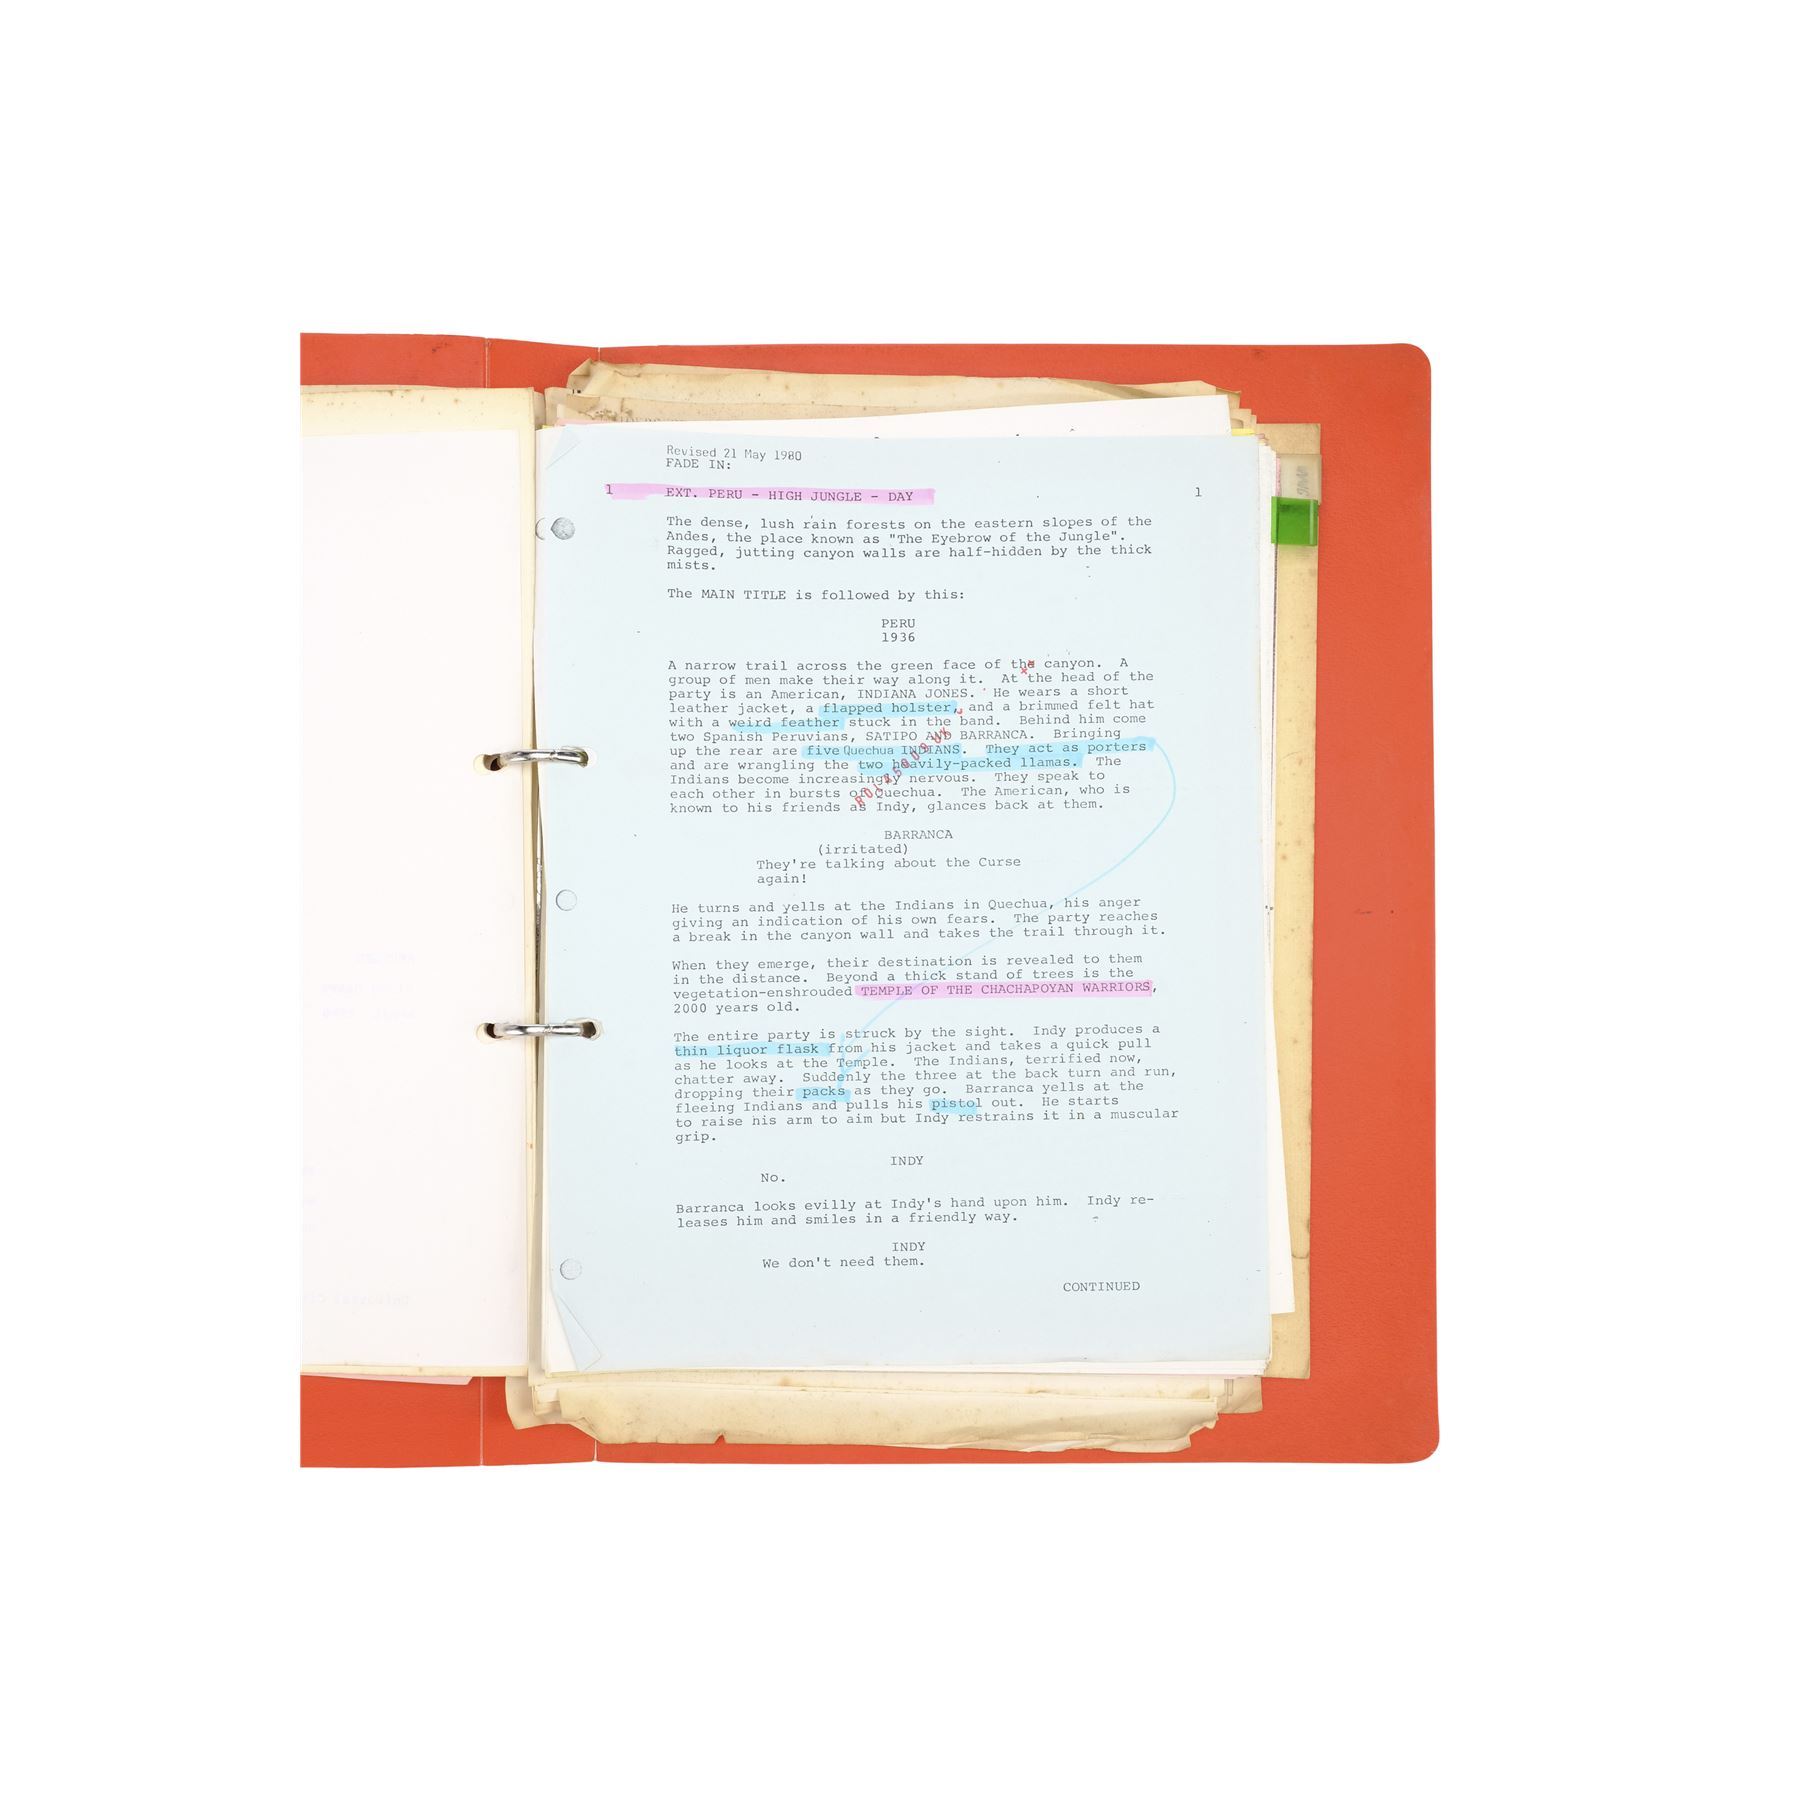 Revised 21 May 1980
FADE IN:
1 EXT. PERU - HIGH JUNGLE - DAY 1
The dense, lush rain forests on the eastern slopes of the
Andes, the place known as "The Eyebrow of the Jungle".
Ragged, jutting canyon walls are half-hidden by the thick
mists.
The MAIN TITLE is followed by this:
PERU
1936
A narrow trail across the green face of the canyon. A
group of men make their way along it. At the head of the
party is an American, INDIANA JONES. He wears a short
leather jacket, a flapped holster, and a brimmed felt hat
with a weird feather stuck in the band. Behind him come
two Spanish Peruvians, SATIPO AND BARRANCA. Bringing
up the rear are five Quechua INDIANS. They act as porters
and are wrangling the two heavily-packed llamas. The
Indians become increasingly nervous. They speak to
each other in bursts of Quechua. The American, who is
known to his friends as Indy, glances back at them.
BARRANCA
(irritated)
They're talking about the Curse
again!
He turns and yells at the Indians in Quechua, his anger
giving an indication of his own fears. The party reaches
a break in the canyon wall and takes the trail through it.
When they emerge, their destination is revealed to them
in the distance. Beyond a thick stand of trees is the
vegetation-enshrouded TEMPLE OF THE CHACHAPOYAN WARRIORS,
2000 years old.
The entire party is struck by the sight. Indy produces a
thin liquor flask from his jacket and takes a quick pull
as he looks at the Temple. The Indians, terrified now,
chatter away. Suddenly the three at the back turn and run,
dropping their packs as they go. Barranca yells at the
fleeing Indians and pulls his pistol out. He starts
to raise his arm to aim but Indy restrains it in a muscular
grip.
INDY
No.
Barranca looks evilly at Indy's hand upon him. Indy re-
leases him and smiles in a friendly way.
INDY
We don't need them.
CONTINUED